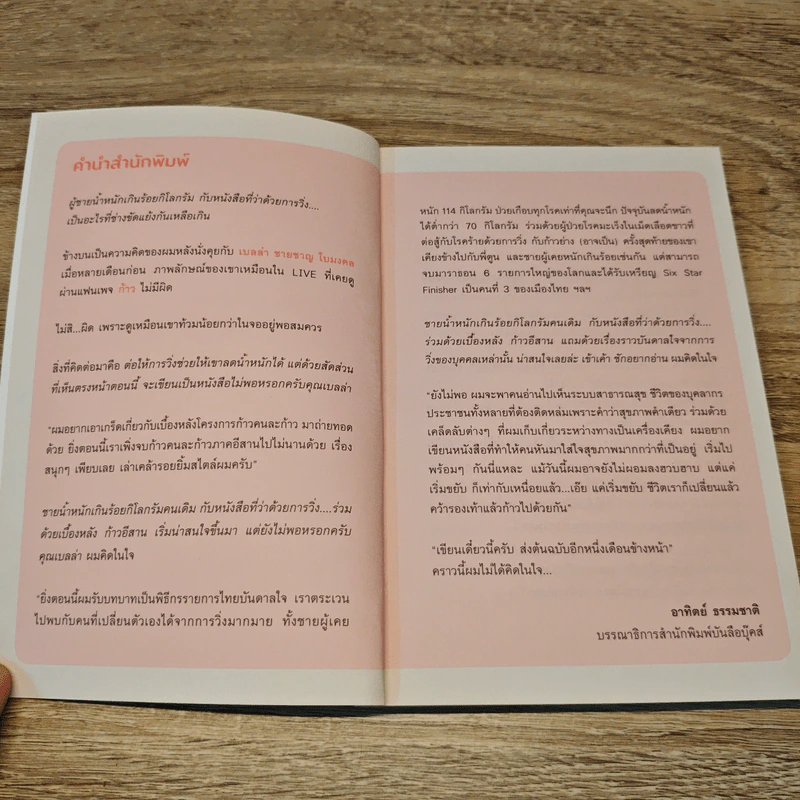 คำนำสำนักพิมพ์
ผู้ชายน้ำหนักเกินร้อยกิโลกรัม กับหนังสือที่ว่าด้วยการวิ่ง....
เป็นอะไรที่ช่างขัดแย้งกันเหลือเกิน
ข้างบนเป็นความคิดของผมหลังนั่งคุยกับ เบลล่า ชายชาญ ใบมงคล
เมื่อหลายเดือนก่อน ภาพลักษณ์ของเขาเหมือนใน LIVE ที่เคยดู
ผ่านแฟนเพจ ก้าว ไม่มีผิด
ไม่สิ...ผิด เพราะดูเหมือนเขาท้วมน้อยกว่าในจออยู่พอสมควร
สิ่งที่คิดต่อมาคือ ต่อให้การวิ่งช่วยให้เขาลดน้ำหนักได้ แต่ด้วยสัดส่วน
ที่เห็นตรงหน้าตอนนี้ จะเขียนเป็นหนังสือไม่พอหรอกครับคุณเบลล่า
“ผมอยากเอาเกร็ดเกี่ยวกับเบื้องหลังโครงการก้าวคนละก้าว มาถ่ายทอด
ด้วย ยิ่งตอนนี้เราเพิ่งจบก้าวคนละก้าวภาคอีสานไปไม่นานด้วย เรื่อง
สนุกๆ เพียบเลย เล่าเคล้ารอยยิ้มสไตล์ผมครับ”
ชายน้ำหนักเกินร้อยกิโลกรัมคนเดิม กับหนังสือที่ว่าด้วยการวิ่ง....ร่วม
ด้วยเบื้องหลัง ก้าวอีสาน เริ่มน่าสนใจขึ้นมา แต่ยังไม่พอหรอกครับ
คุณเบลล่า ผมคิดในใจ
“ยิ่งตอนนี้ผมรับบทบาทเป็นพิธีกรรายการไทยบันดาลใจ เราตระเวน
ไปพบกับคนที่เปลี่ยนตัวเองได้จากการวิ่งมากมาย ทั้งชายผู้เคย
หนัก 114 กิโลกรัม ป่วยเกือบทุกโรคเท่าที่คุณจะนึก ปัจจุบันลดน้ำหนัก
ได้ต่ำกว่า 70 กิโลกรัม ร่วมด้วยผู้ป่วยโรคมะเร็งในเม็ดเลือดขาวที่
ต่อสู้กับโรคร้ายด้วยการวิ่ง กับก้าวย่าง (อาจเป็น) ครั้งสุดท้ายของเขา
เคียงข้างไปกับพี่ตูน และชายผู้เคยหนักเกินร้อยเช่นกัน แต่สามารถ
จบมาราธอน 6 รายการใหญ่ของโลกและได้รับเหรียญ Six Star
Finisher เป็นคนที่ 3 ของเมืองไทย ฯลฯ
ชายน้ำหนักเกินร้อยกิโลกรัมคนเดิม กับหนังสือที่ว่าด้วยการวิ่ง....
ร่วมด้วยเบื้องหลัง ก้าวอีสาน แถมด้วยเรื่องราวบันดาลใจจากการ
วิ่งของบุคคลเหล่านั้น น่าสนใจเลยล่ะ เข้าเค้า ชักอยากอ่าน ผมคิดในใจ
“ยังไม่พอ ผมจะพาคนอ่านไปเห็นระบบสาธารณสุข ชีวิตของบุคลากร
ประชาชนทั้งหลายที่ต้องติดหล่มเพราะคำว่าสุขภาพคำเดียว ร่วมด้วย
เคล็ดลับต่างๆ ที่ผมเก็บเกี่ยวระหว่างทางเป็นเครื่องเคียง ผมอยาก
เขียนหนังสือที่ทำให้คนหันมาใส่ใจสุขภาพมากกว่าที่เป็นอยู่ เริ่มไป
พร้อมๆ กันนี่แหละ แม้วันนี้ผมอาจยังไม่ผอมลงฮวบฮาบ แต่แค่
เริ่มขยับ ก็เท่ากับเหนื่อยแล้ว...เอ๊ย แค่เริ่มขยับ ชีวิตเราก็เปลี่ยนแล้ว
คว้ารองเท้าแล้วก้าวไปด้วยกัน”
“เขียนเดี๋ยวนี้ครับ ส่งต้นฉบับอีกหนึ่งเดือนข้างหน้า”
คราวนี้ผมไม่ได้คิดในใจ...
อาทิตย์ ธรรมชาติ
บรรณาธิการสำนักพิมพ์บันลือบุ๊คส์